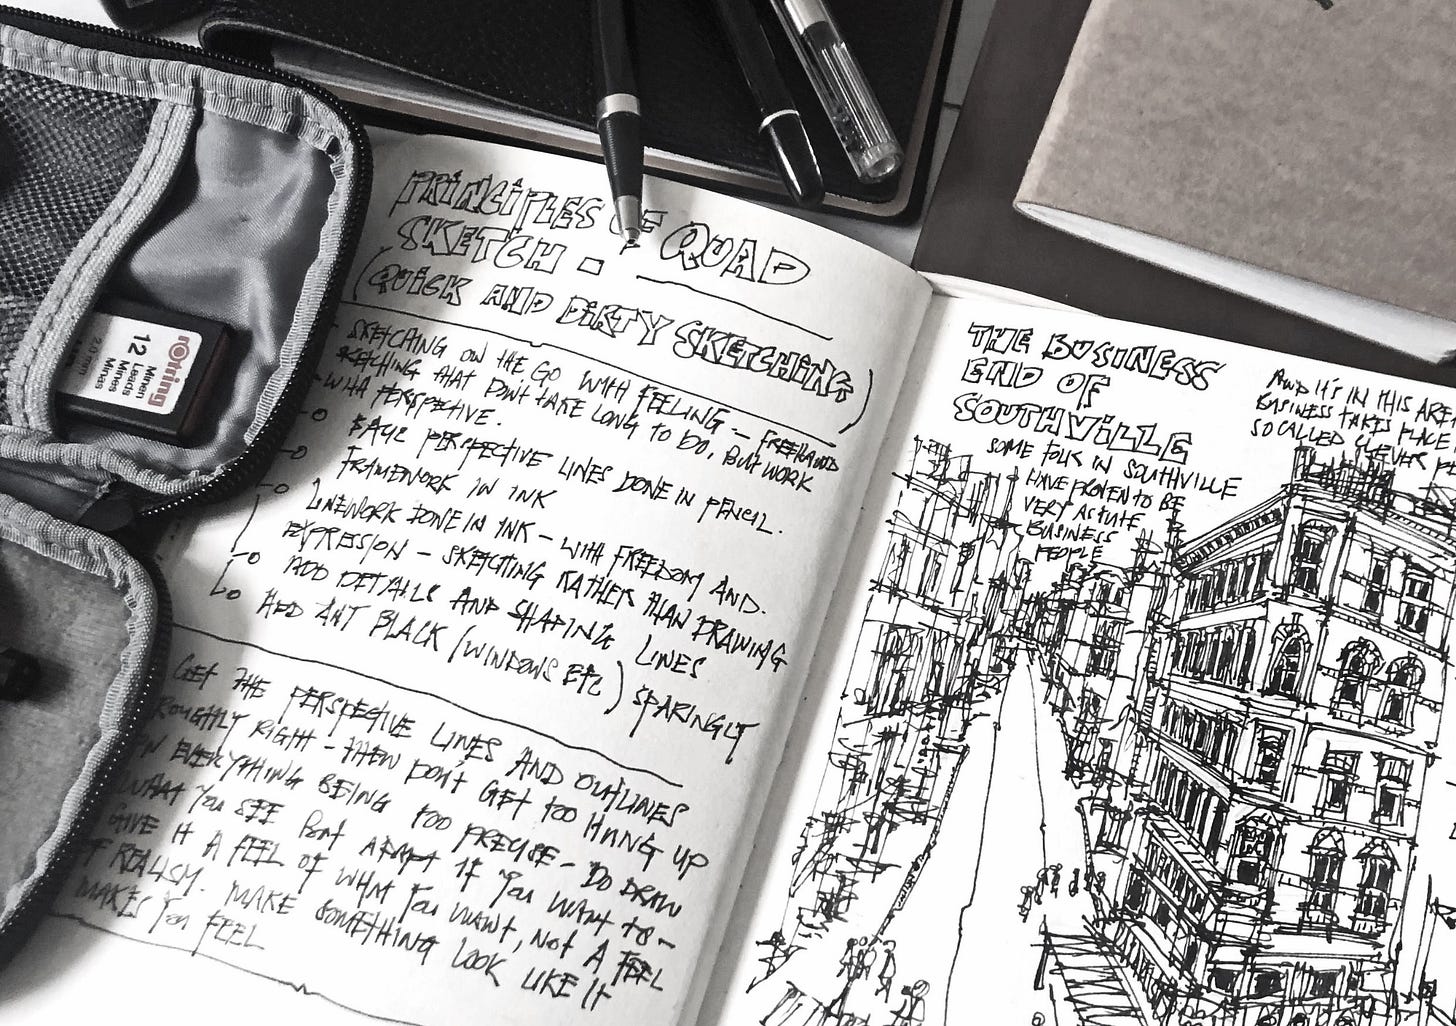 PRINCIPLES OF QUAD
SKETCH.
(QUICK AND DIRTY SKETCHING)
SKETCHING ON THE GO WITH FEELING – FREEHAND
SKETCHING THAT DON'T TAKE LONG TO DO, BUT WORK
WITH PERSPECTIVE.
BASIC PERSPECTIVE LINES DONE IN PENCIL.
FRAMEWORK IN INK
LINEWORK DONE IN INK – WITH FREEDOM AND.
EXPRESSION – SKETCHING RATHER THAN DRAWING
ADD DETAILS AND SHAPING LINES
ADD ANY BLACK (WINDOWS ETC) SPARINGLY
GET THE PERSPECTIVE LINES AND OUTLINES
ROUGHLY RIGHT – THEN DON'T GET TOO HUNG UP
ON EVERYTHING BEING TOO PRECISE – DO DRAW
WHAT YOU SEE BUT ADAPT IF YOU WANT TO –
GIVE IT A FEEL OF WHAT YOU WANT, NOT A FEEL
OF REALISM. MAKE SOMETHING LOOK LIKE IT
MAKES YOU FEEL
THE BUSINESS
END OF
SOUTHVILLE
SOME FOLK IN SOUTHVILLE
HAVE PROVEN TO BE
VERY ASTUTE
BUSINESS
PEOPLE
AND IT'S IN THIS ARE
BUSINESS TAKES PLACE
SO CALLED CLEVER PE
rotring
12
Minen
Leads
Mines
Minas